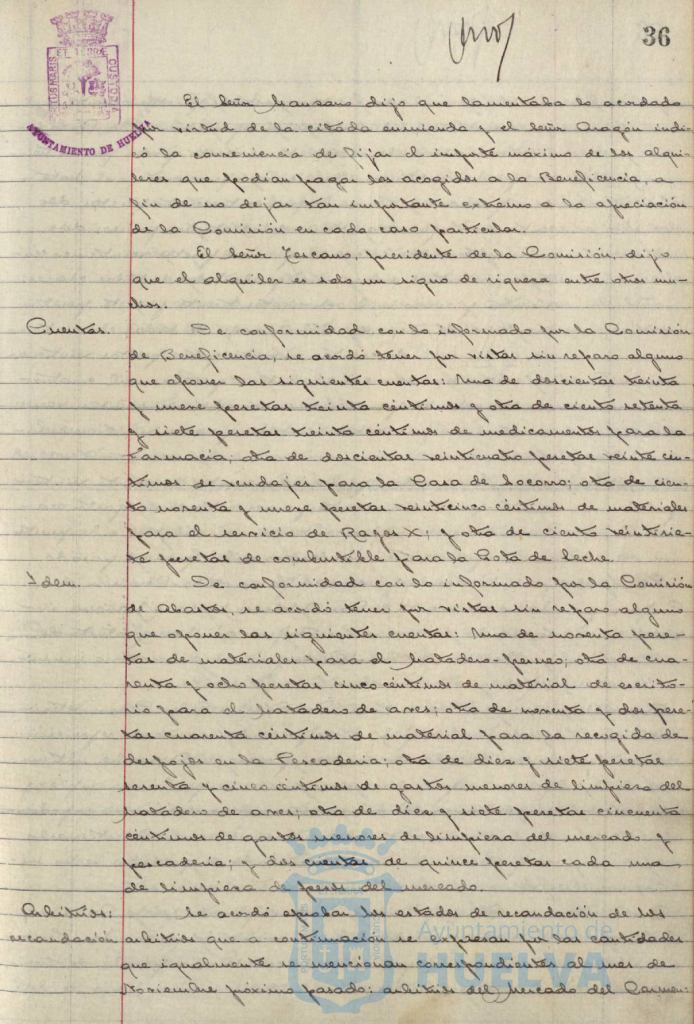 36
PORTUS MARIS ET TERRÆ CUSTODIA
AYUNTAMIENTO DE HUELVA
El Señor Manzano dijo que lamentaba lo acordado
por virtud de la citada enmienda y el Señor Aragón indi-
có la conveniencia de fijar el importe máximo de los alqui-
leres que podían pagar los acogidos a la Beneficencia, a
fin de no dejar tan importante extremo a la apreciación
de la Comisión en cada caso particular.
El Señor Toscano, presidente de la Comisión, dijo
que el alquiler es solo un signo de riqueza entre otros mu-
chos.
Cuentas. De conformidad con lo informado por la Comisión
de Beneficencia, se acordó tener por vistas sin reparo alguno
que oponer las siguientes cuentas: Una de doscientas treinta
y nueve pesetas treinta céntimos y otra de ciento setenta
y siete pesetas treinta céntimos de medicamentos para la
Farmacia; otra de doscientas veinticuatro pesetas veinte cén-
timos de vendajes para la Casa de Socorro; otra de cien-
to noventa y nueve pesetas veinticinco céntimos de materiales
para el servicio de Rayos X; y otra de ciento veintisie-
te pesetas de combustible para la Gota de leche.
Idem. De conformidad con lo informado por la Comisión
de Abastos, se acordó tener por vistas sin reparo alguno
que oponer las siguientes cuentas: Una de noventa pese-
tas de materiales para el Matadero-perneo; otra de cua-
renta y ocho pesetas cinco céntimos de material de escrito-
rio para el Matadero de aves; otra de noventa y dos pese-
tas cuarenta céntimos de material para la recogida de
despojos en la Pescadería; otra de diez y siete pesetas
setenta y cinco céntimos de gastos menores de limpieza del
Matadero de aves; otra de diez y siete pesetas cincuenta
céntimos de gastos menores de limpieza del mercado y
pescadería; y dos cuentas de quince pesetas cada una
de limpieza de pesos del mercado.
Arbitrios: Se acordó aprobar los estados de recaudación de los
recaudación arbitrios que a continuación se expresan por las cantidades
que igualmente se mencionan correspondientes al mes de
Noviembre próximo pasado: arbitrios del Mercado del Carmen:
Ayuntamiento de
HUELVA